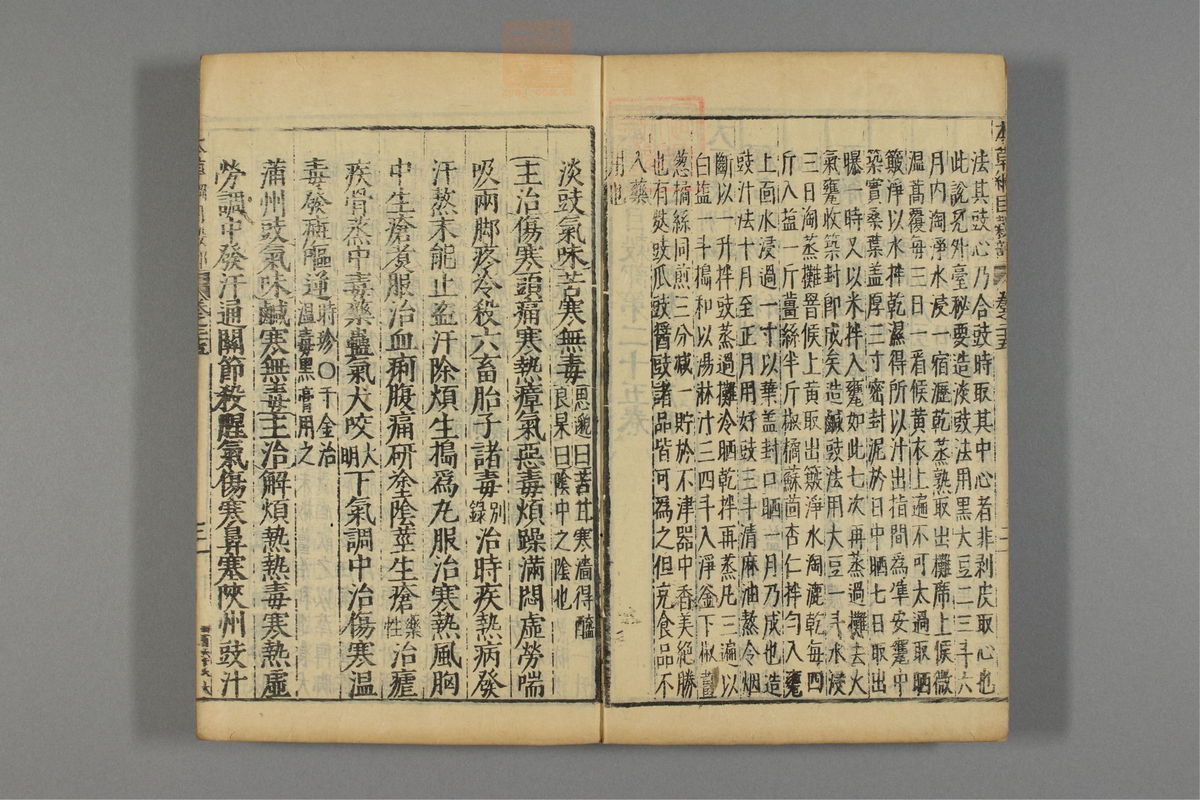 法其豉心乃合豉時取其中心者非剥皮取心也
此說見外臺秘要造淡豉法用黑大豆二三斗六
月内淘淨水浸一宿瀝乾蒸熟取出攤席上候微
温蒿覆每三日一看候黄衣上遍不可太過取晒
簸淨以水拌乾濕得所以汁出指間為凖安甕中
築實桑葉盖厚三寸密封泥於日中晒七日取出
曝一時又以水拌入甕如此七次再蒸過攤去火
氣甕收築封即成矣造鹹豉法用大豆一斗水浸
三日淘蒸攤罯候上黄取出簸淨水淘漉乾每四
斤入鹽一斤薑絲半斤椒橘蘇茴杏仁拌勻入甕
上面水浸過一寸以葉盖封口晒一月乃成也造
豉汁法十月至正月用好豉三斗清麻油熬令烟
斷以一升拌豉蒸過攤冷晒乾拌再蒸凡三遍以
白盐一斗搗和以湯淋汁三四斗入淨釜下椒薑
葱橘絲同煎三分减一貯於不津器中香美絶勝
也有麩豉瓜豉醬豉諸品皆可為之但充食品不
入藥
用也
淡豉氣味苦寒無毒思邈曰苦甘寒濇得醯
良杲曰陰中之陰也
主治傷寒頭痛寒熱瘴氣惡毒煩躁滿悶虛勞喘
吸兩脚疼冷殺六畜胎子諸毒别錄治時疾熱病發
汗熬末能止盗汗除煩生搗為丸服治寒熱風胸
中生瘡煑服治血痢腹痛研塗陰莖生瘡藥性治瘧
疾骨蒸中毒藥蠱氣犬咬大明下氣調中治傷寒温
毒發斑嘔逆時珍〇千金治
温毒黑膏用之
蒲州豉氣味鹹寒無毒主治解煩熱熱毒寒熱虛
勞調中發汗通關節殺腥氣傷寒鼻塞陝州豉汁